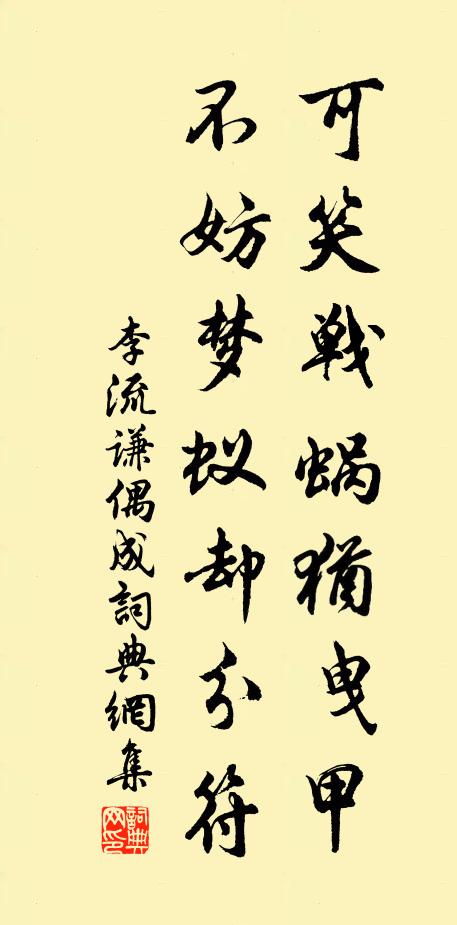 可笑戦蜗猶曳甲
不妨梦蚁却分符
李流谦偶成詞典網集
詞典网印